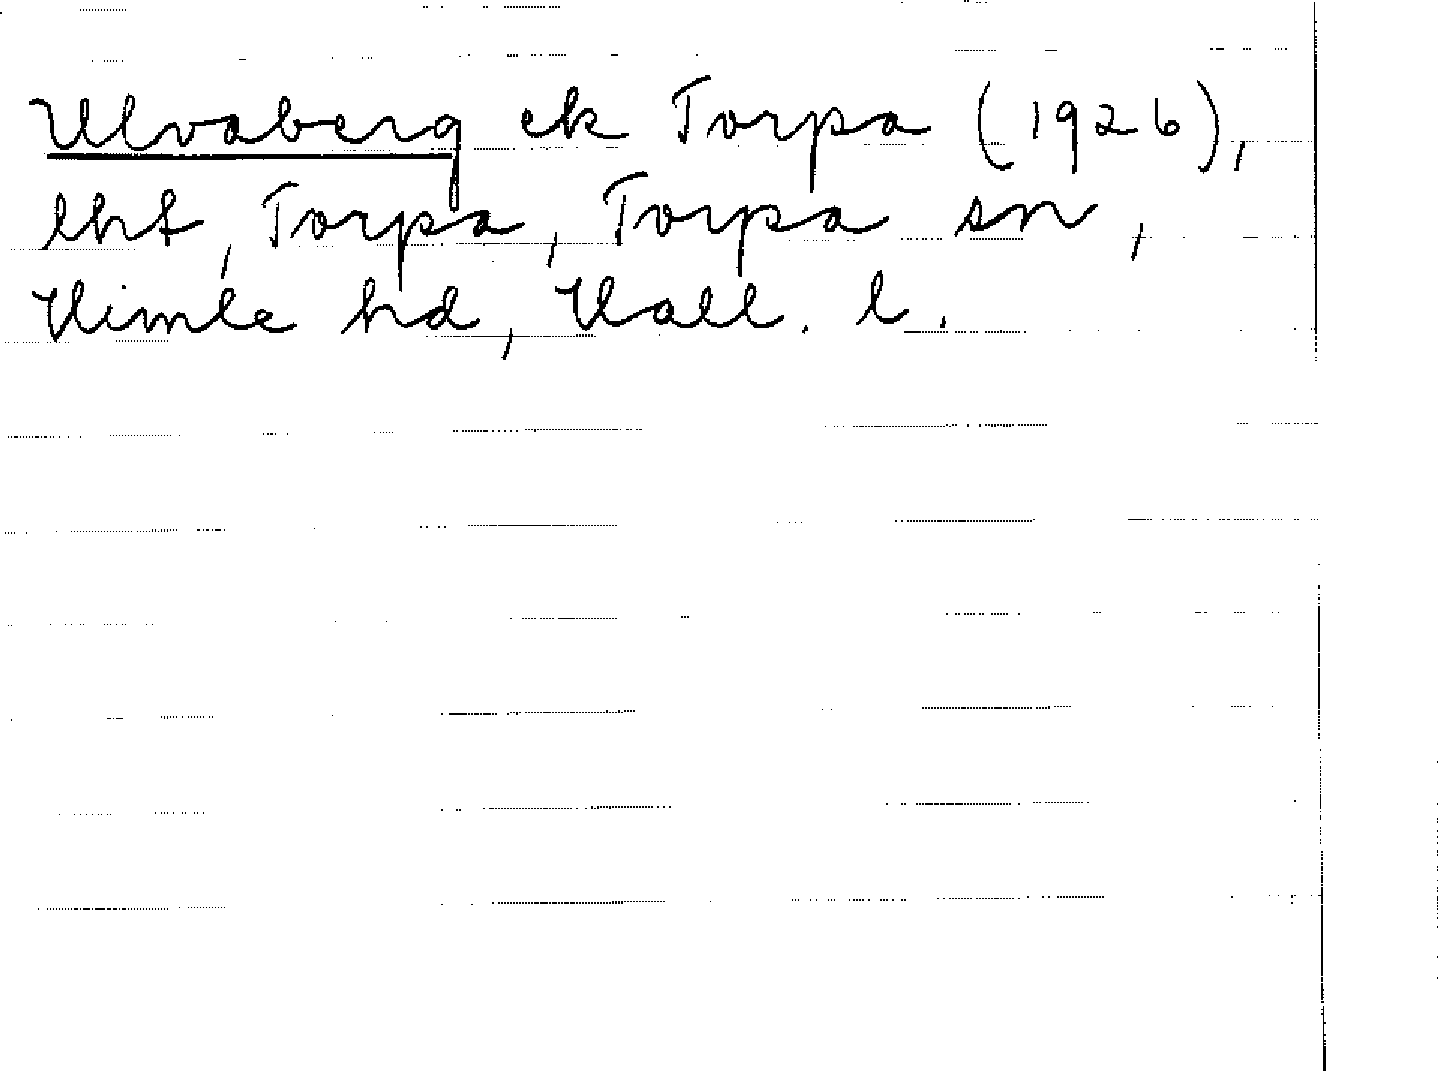 Ulvaberg ek Torpa (1926),
lht, Torpa, Torpa sn,
Himle hd, Hall. l.